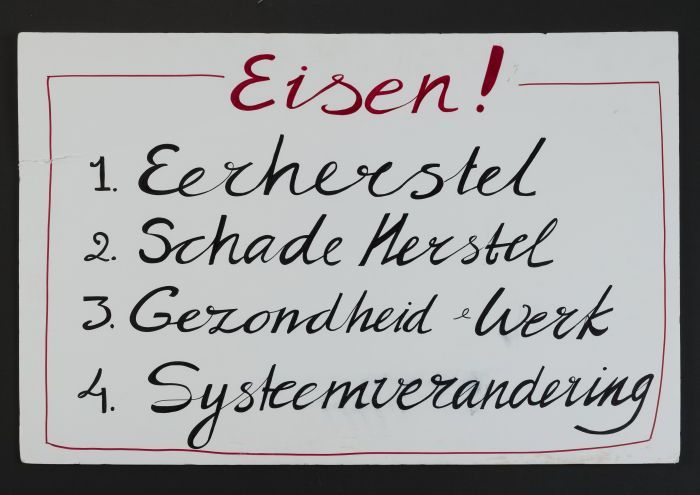 Eisen!
1. Eerherstel
2. Schade Herstel
3. Gezondheid & Werk
4. Systeemverandering